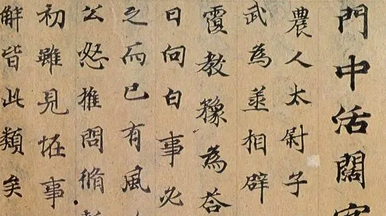 門中活闊字
農人太尉子
武為丞相辟
覆教豫為荅
日向白事必
之而已有風
公怒推問脩
初雖見恠事
解皆此類矣